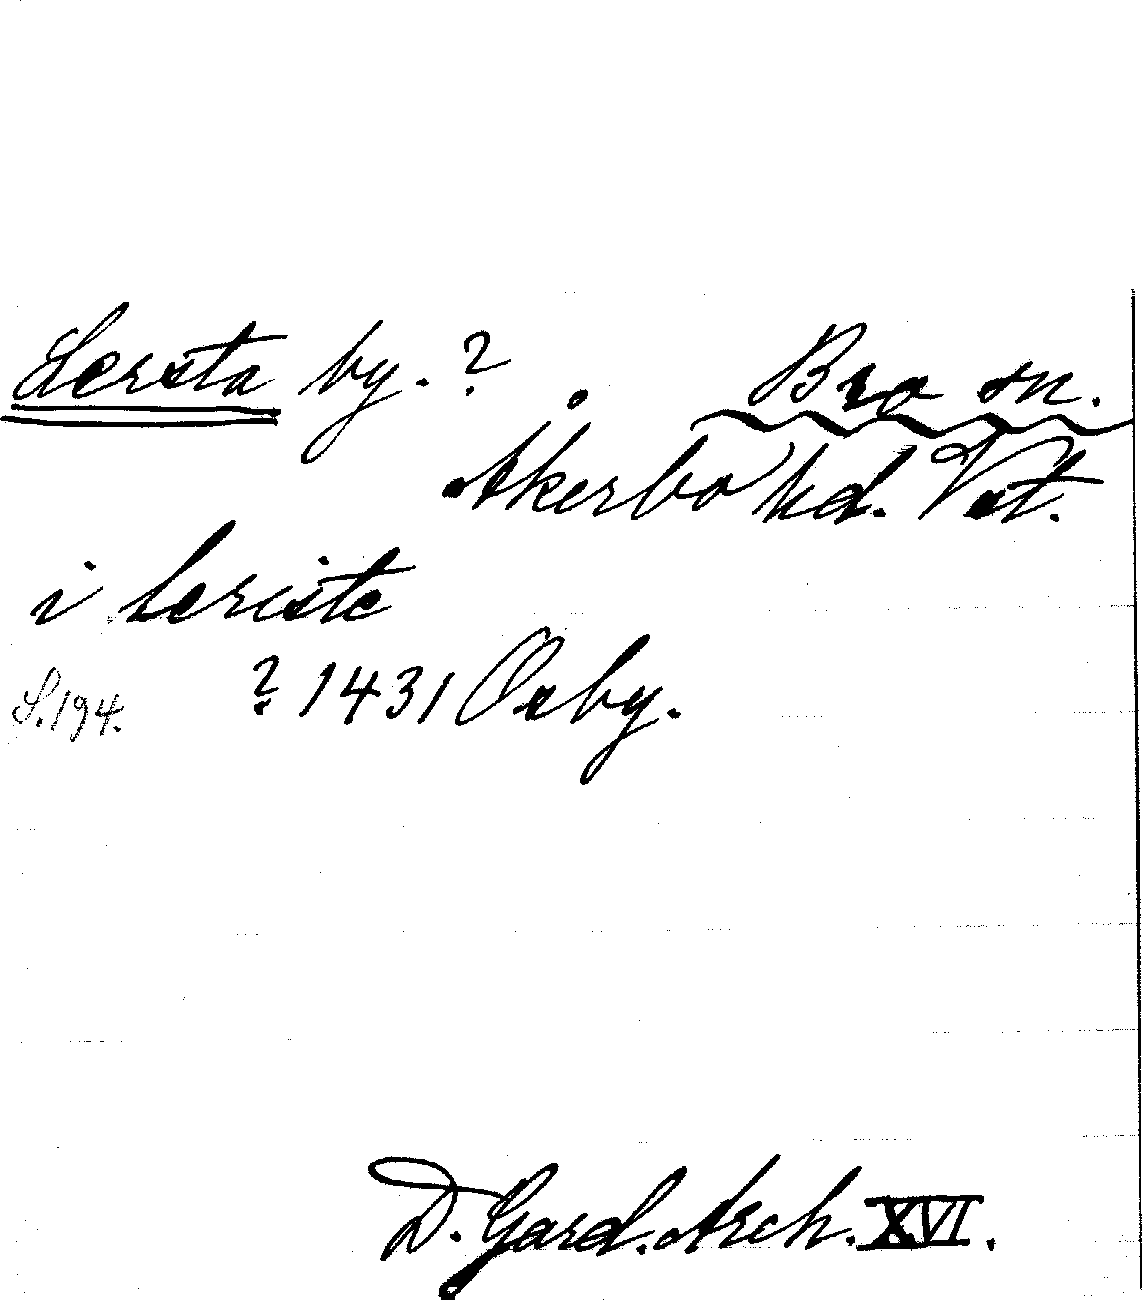 Lersta by. ? Bro sn.
Åkerbo hd. Vstl.
i lersiste
S. 194. ? 1431 Orby.
D. Gard. Arch. XVI.